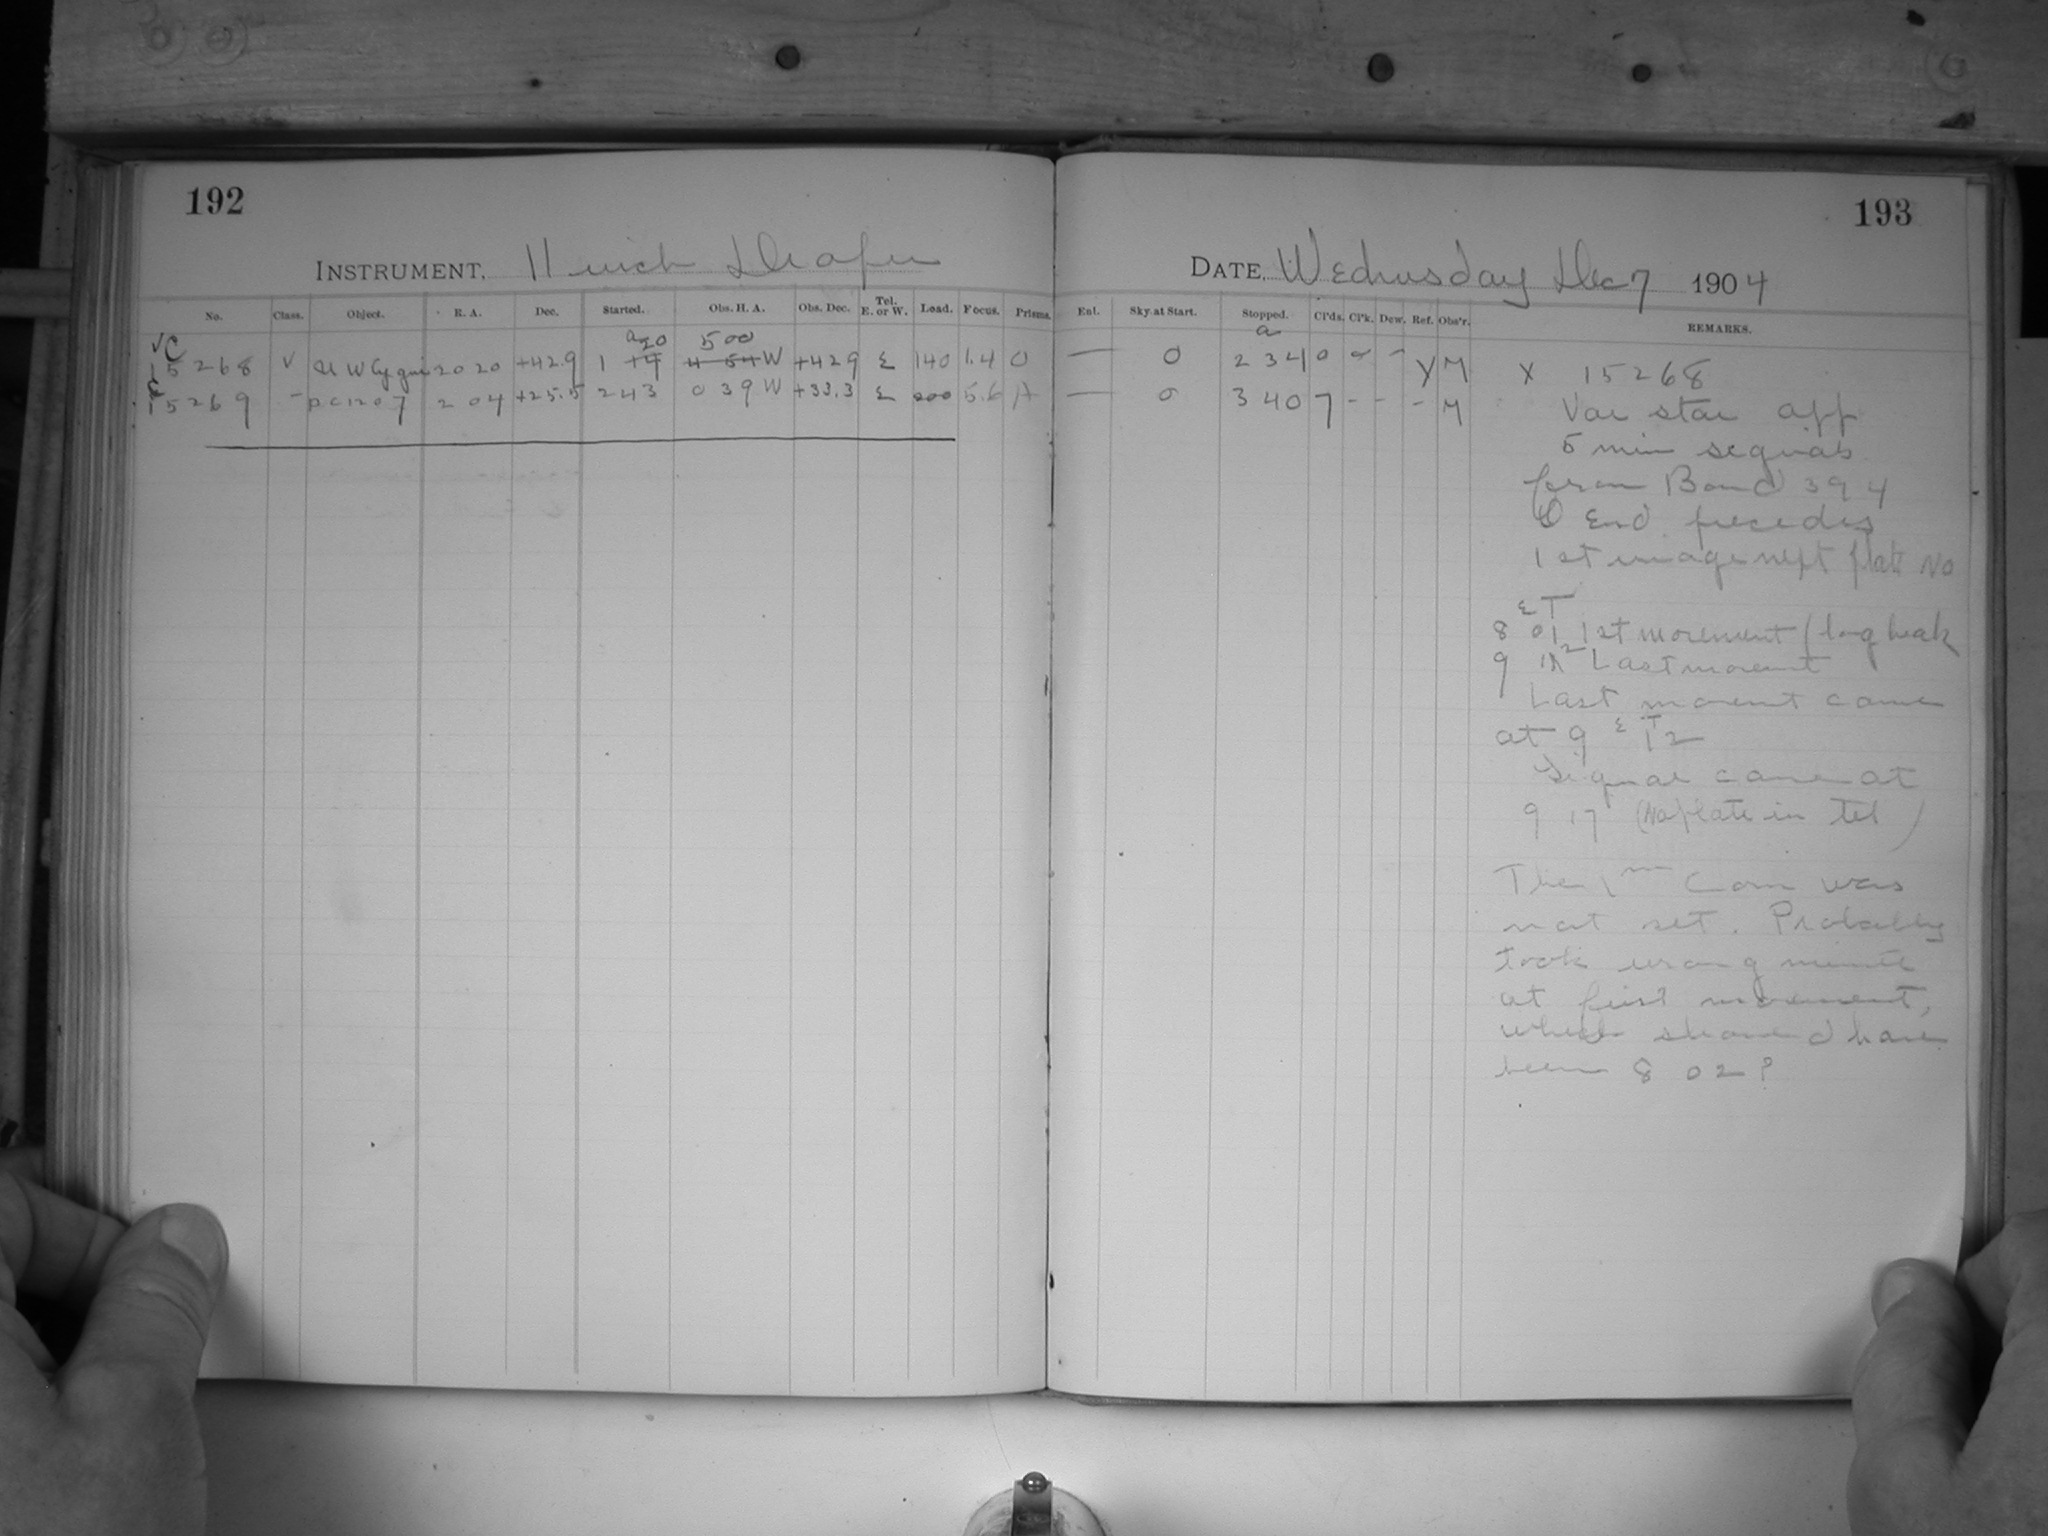 192
193
INSTRUMENT, 11 inch Draper
DATE, Wednesday Dec 7 1904
No. Class. Object. R. A. Dec. Started. Obs. H. A. Obs. Dec. Tel. E. or W. Load. Focus. Prisms. Enl. Sky at Start. Stopped. Cl'ds. Cl'k. Dew. Ref. Obs'r. REMARKS.
VC
20 5 00
15268 V U W Cygni 20 20 +42.9 1 19 4 54 W +42.9 E 140 1.4 0 — 0 2 34 0 - - y M
15269 - DC1207 2 04 +25.5 2 43 0 39 W +33.3 E 200 5.6 A — 0 3 40 7 - - - M
X 15268
Var star app
5 min signals
from Bond 394
End precedes
1st image next plate No
ET
8 01 1st movement (long break
9 Last movemt
Last movemt came
at 9 ET 12
Signal came at
9 17 (No plate in tel)
The 1m Com was
not set. Probably
took wrong minute
at first movement,
which should have
been 8 02?